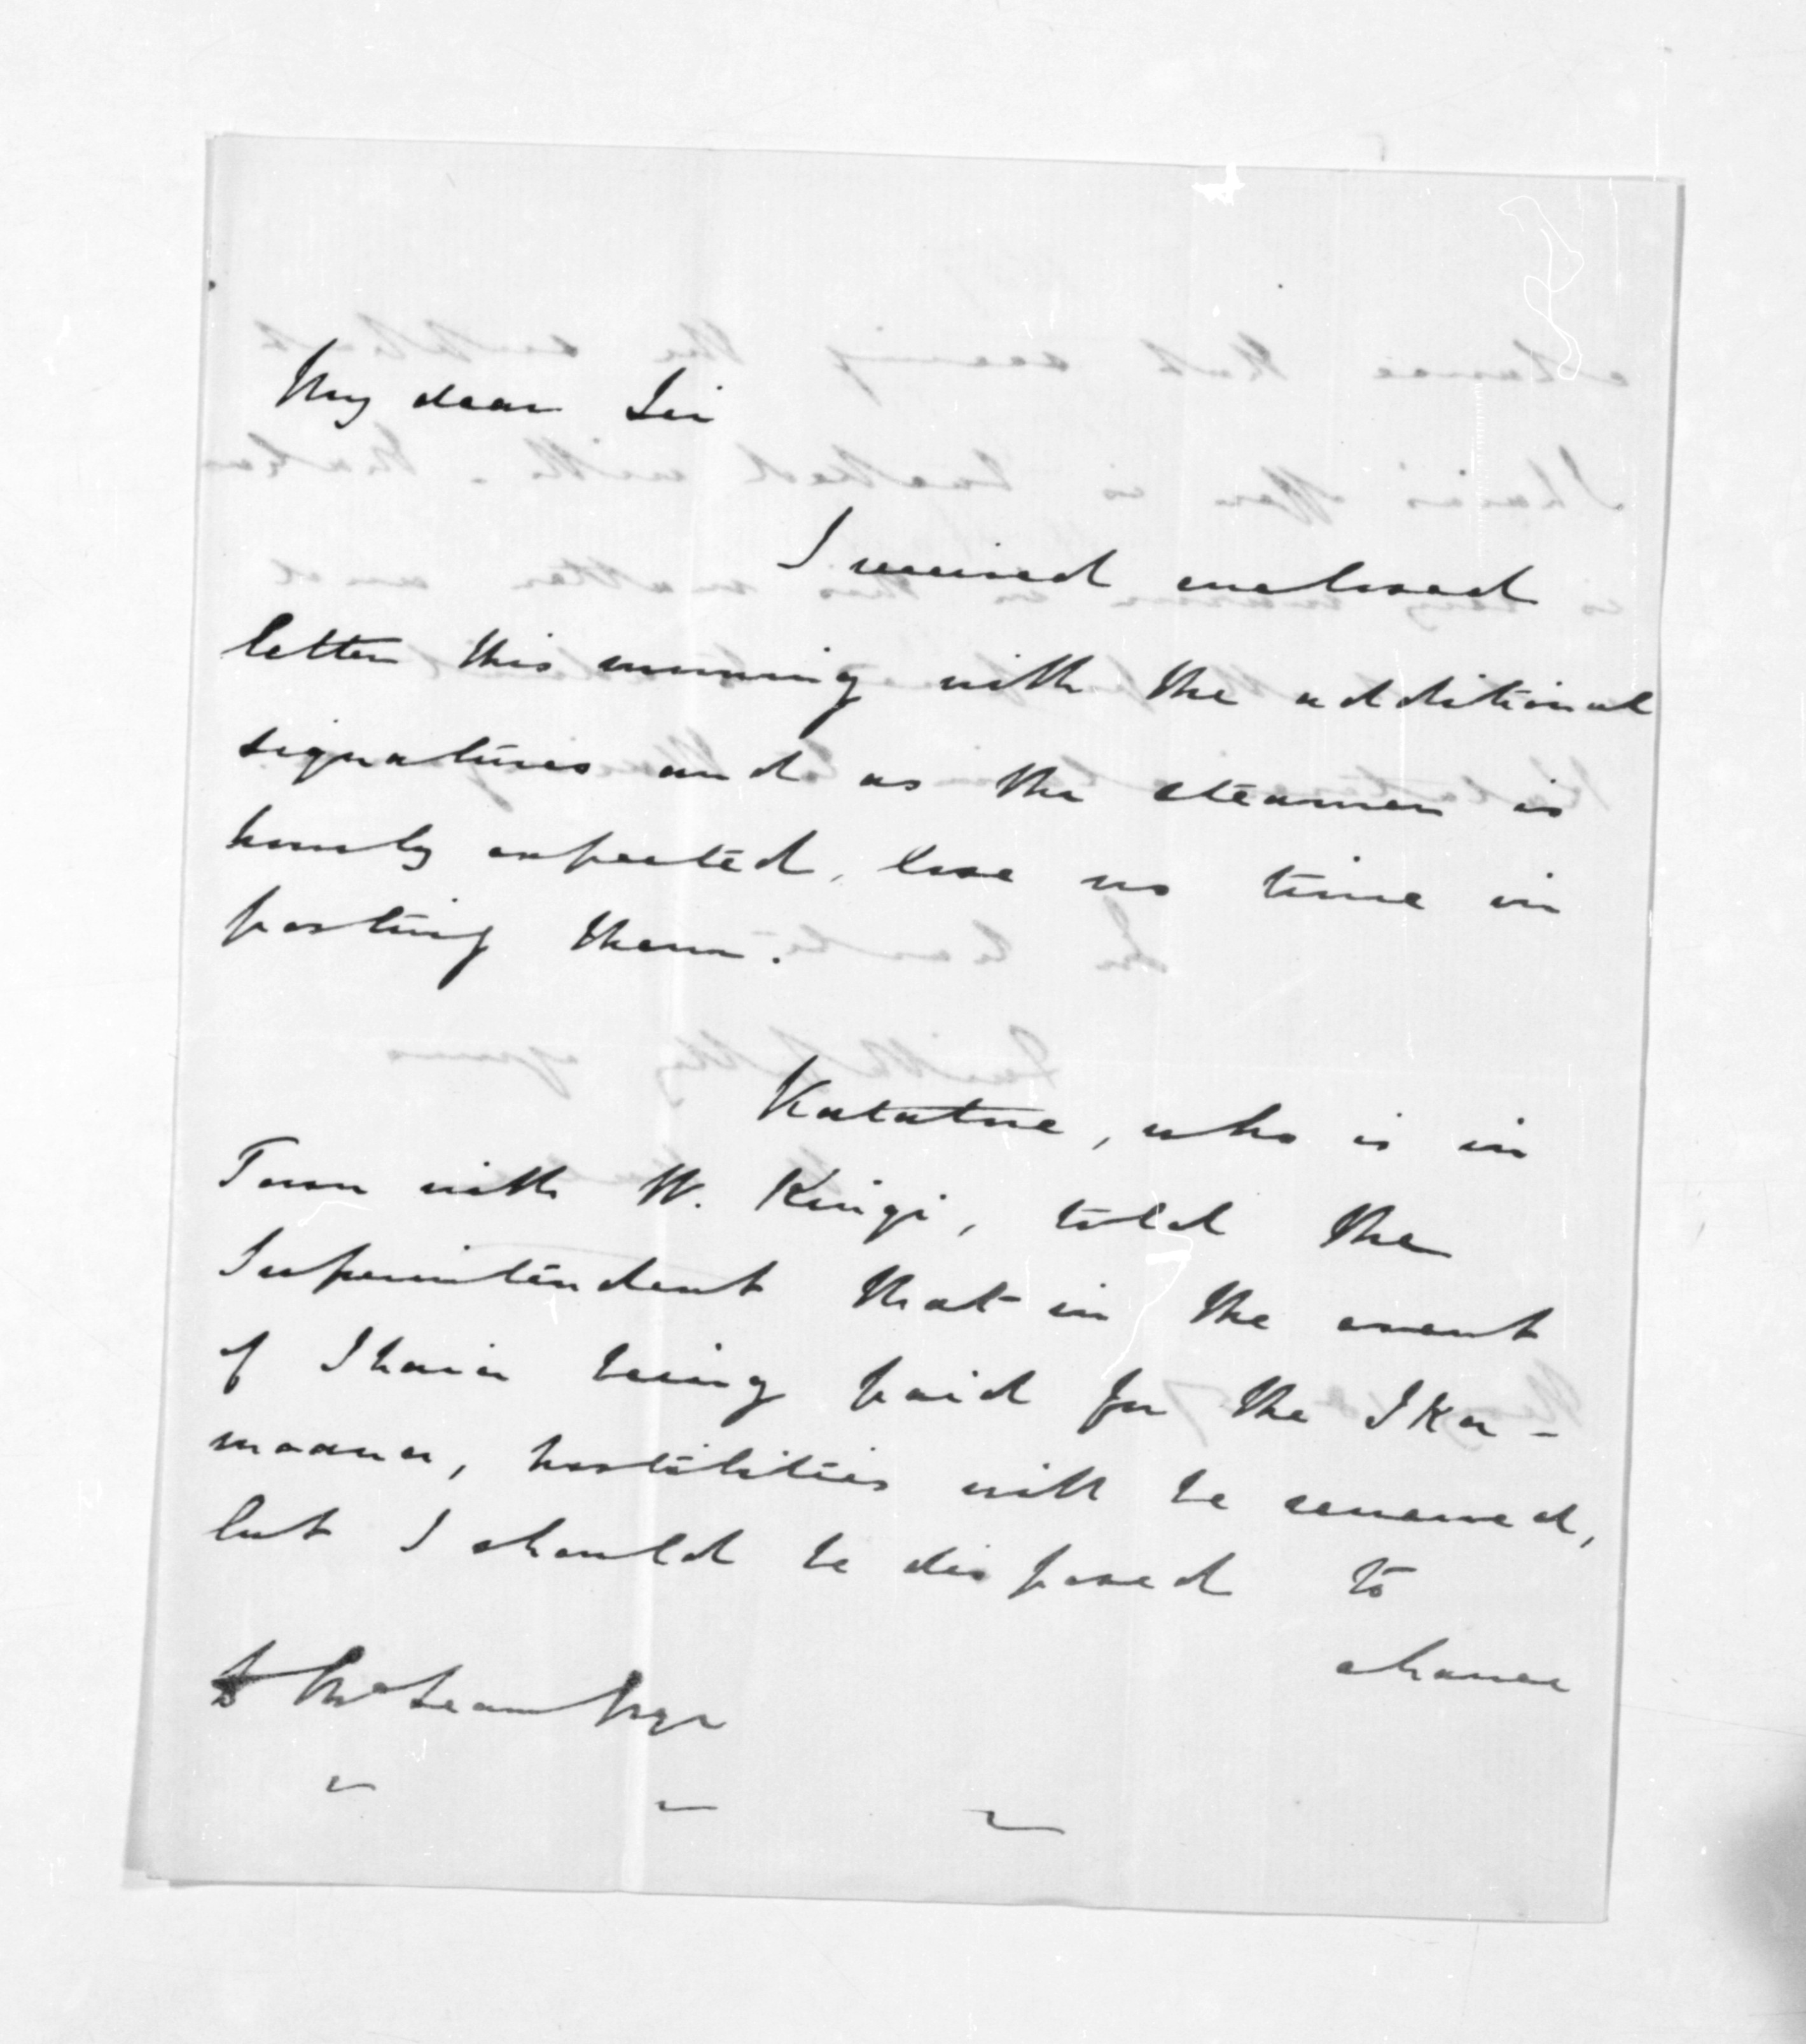 My dear Sir
I received enclosed
letter this morning with the additional
signatures and as the steamer is
hourly expected, lose no time in
posting them.
Katatore, who is in
Town with W. Kingi, told the
Superintendent that in the event
of Ihaia being paid for the Ika-
moana, hostilities will be renewed,
but I should be disposed to
chance
McLean Esqr